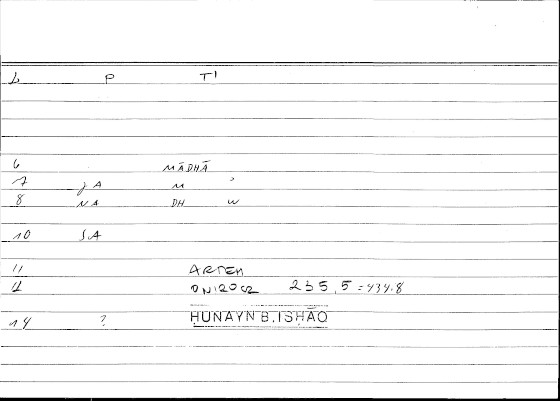 L P T'
6 MĀDHĀ
7 JA M ʾ
8 NA DH W
10 SA
11 ARTEM
12 ONIROC 235,5 = 434.8
14 ? HUNAYN B. ISHĀQ